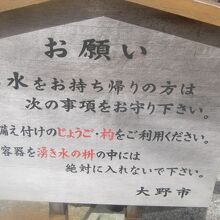 お願い
水をお持ち帰りの方は
次の事項をお守り下さい。
備え付けのじょうご・杓をご利用ください。
容器を湧き水の枡の中には
絶対に入れないで下さい。
大野市